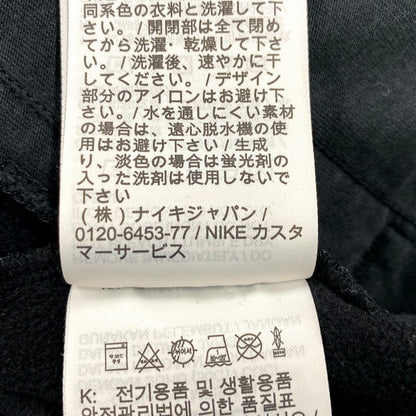 同系色の衣料と洗濯して下さ
い。/ 開閉部は全て閉めて
から洗濯・乾燥して下さ
い。/ 洗濯後、速やかに干
してください。/ デザイン
部分のアイロンはお避け下
さい。/ 水を通しにくい素材
の場合は、遠心脱水機の使
用はお避け下さい / 生成
り、淡色の場合は蛍光剤の
入った洗剤は使用しないで
下さい
(株)ナイキジャパン /
0120-6453-77 / NIKE カスタ
マーサービス
K: 전기용품 및 생활용품
안전관리법에 의한 품질표